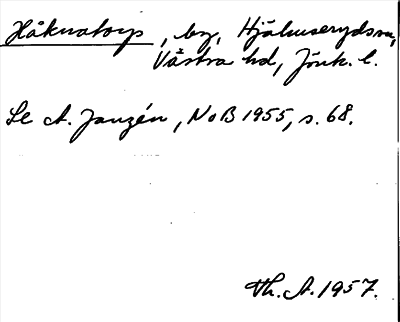 Håknatorp, by, Hjälmseryds sn,
Västra hd, Jönk. l.
Se A. Janzén, NoB 1955, s. 68.
Th. A. 1957.